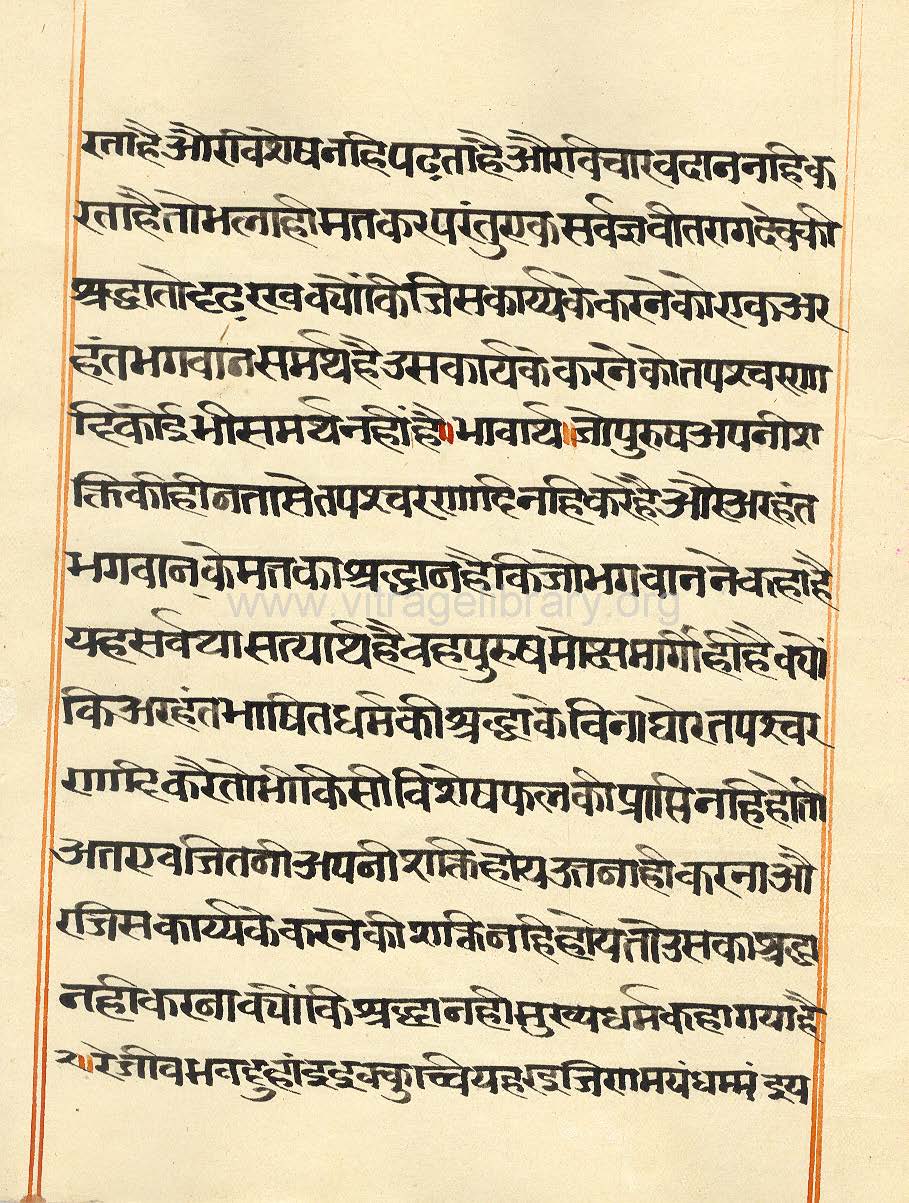 रताहै और विशेष नहि पढताहै और विचारवदान नहि क
रताहै तो भलाही मत कर परंतु एक सर्वज्ञ वीतराग देवकी
श्रद्धा तो दृढ रख क्योंकि जिस कार्य्यके करनेको एक अर
हंत भगवान समर्थ है उस कार्यके करनेको तपश्चरणा
दि कोई भी समर्थ नहीं है॥ भावार्थ॥ जो पुरुष अपनी श
क्तिकी हीनतासे तपश्चरणादि नहि करैहै और अरहंत
भगवानके मतका श्रद्धान है कि जो भगवानने कहा है
यह सर्वथा सत्यार्थ है वह पुरुष मोक्षमार्गी ही है क्यों
कि अरहंत भाषित धर्मकी श्रद्धाके विना घोर तपश्चर
णादि करै तो भी किसी विशेष फलकी प्राप्ति नहि होती
अतएव जितनी अपनी शक्ति होय उतनाही करना औ
र जिस कार्य्यके करनेकी शक्ति नहि होय तो उसका श्रद्धा
नही करना क्योंकि श्रद्धानही मुख्य धर्म कहा गया है
२॥ रे जीव भव दुहाइं इक्कुच्चिय हरइ जिणमयं धम्मं इय
www.vitragelibrary.org